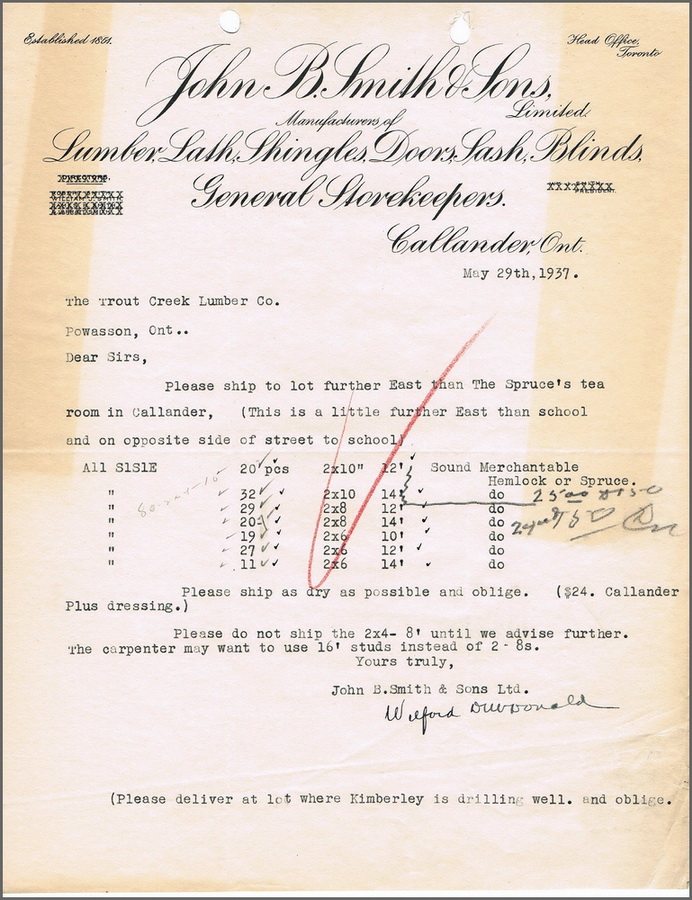 Established 1851.
Head Office,
Toronto
John B. Smith & Sons,
Limited.
Manufacturers of
Lumber, Lath, Shingles, Doors, Sash, Blinds.
General Storekeepers.
PRESIDENT.
Callander, Ont.
May 29th,1937.
The Trout Creek Lumber Co.
Powasson, Ont..
Dear Sirs,
Please ship to lot further East than The Spruce's tea
room in Callander, (This is a little further East than school
and on opposite side of street to school)
All S1S1E 20 pcs 2x10" 12' Sound Merchantable
Hemlock or Spruce.
" 32 2x10 14' do 25 00
" 29 2x8 12' do
" 20 2x8 14' do
" 19 2x6 10' do
" 27 2x6 12' do
" 11 2x6 14' do
Please ship as dry as possible and oblige. ($24. Callander
Plus dressing.)
Please do not ship the 2x4- 8' until we advise further.
The carpenter may want to use 16' studs instead of 2 - 8s.
Yours truly,
John B.Smith & Sons Ltd.
Wilford
(Please deliver at lot where Kimberley is drilling well. and oblige.